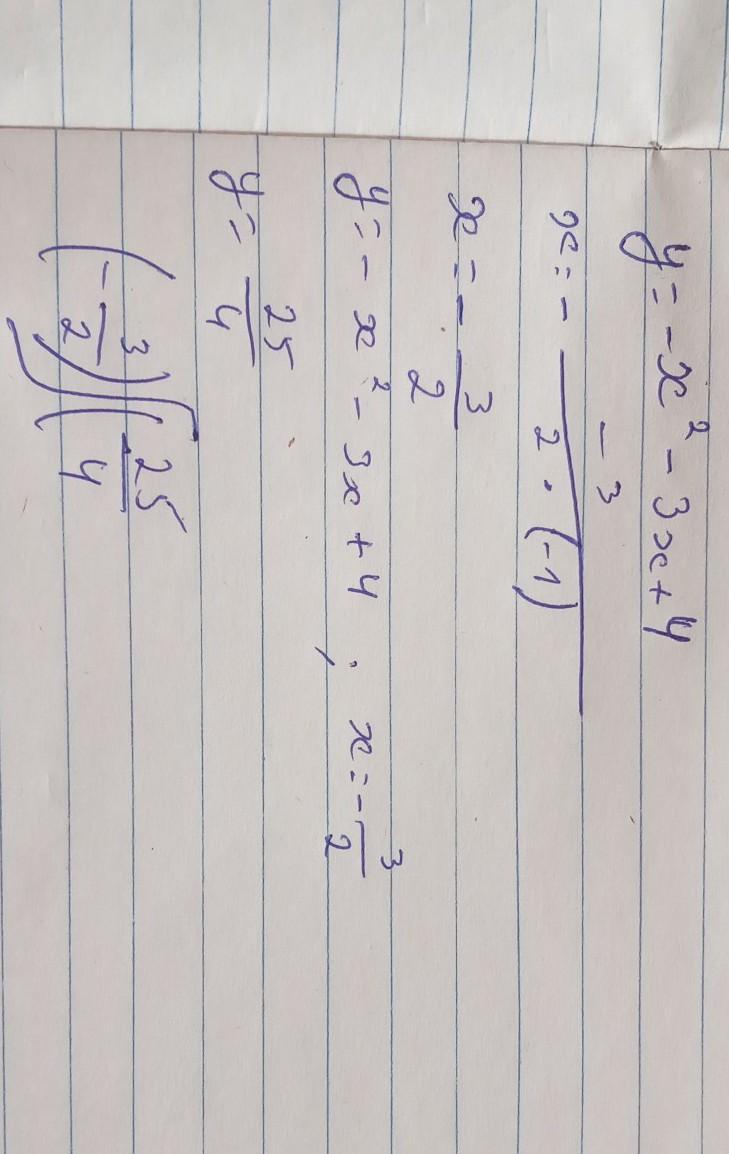 y = -x² - 3x + 4
x = - -3/2·(-1)
x = - 3/2
y = - x² - 3x + 4 , x = - 3/2
y = 25/4
(- 3/2)(25/4